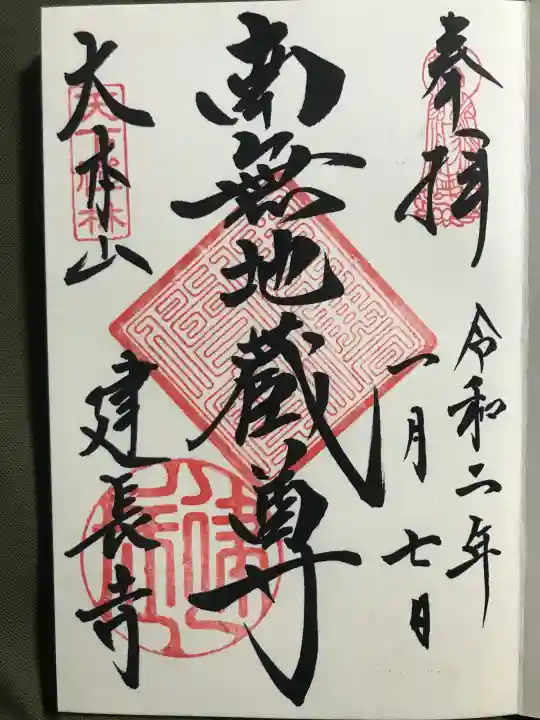 奉拝
令和二年
一月七日
南無地蔵尊
大本山
建長寺
天下禅林